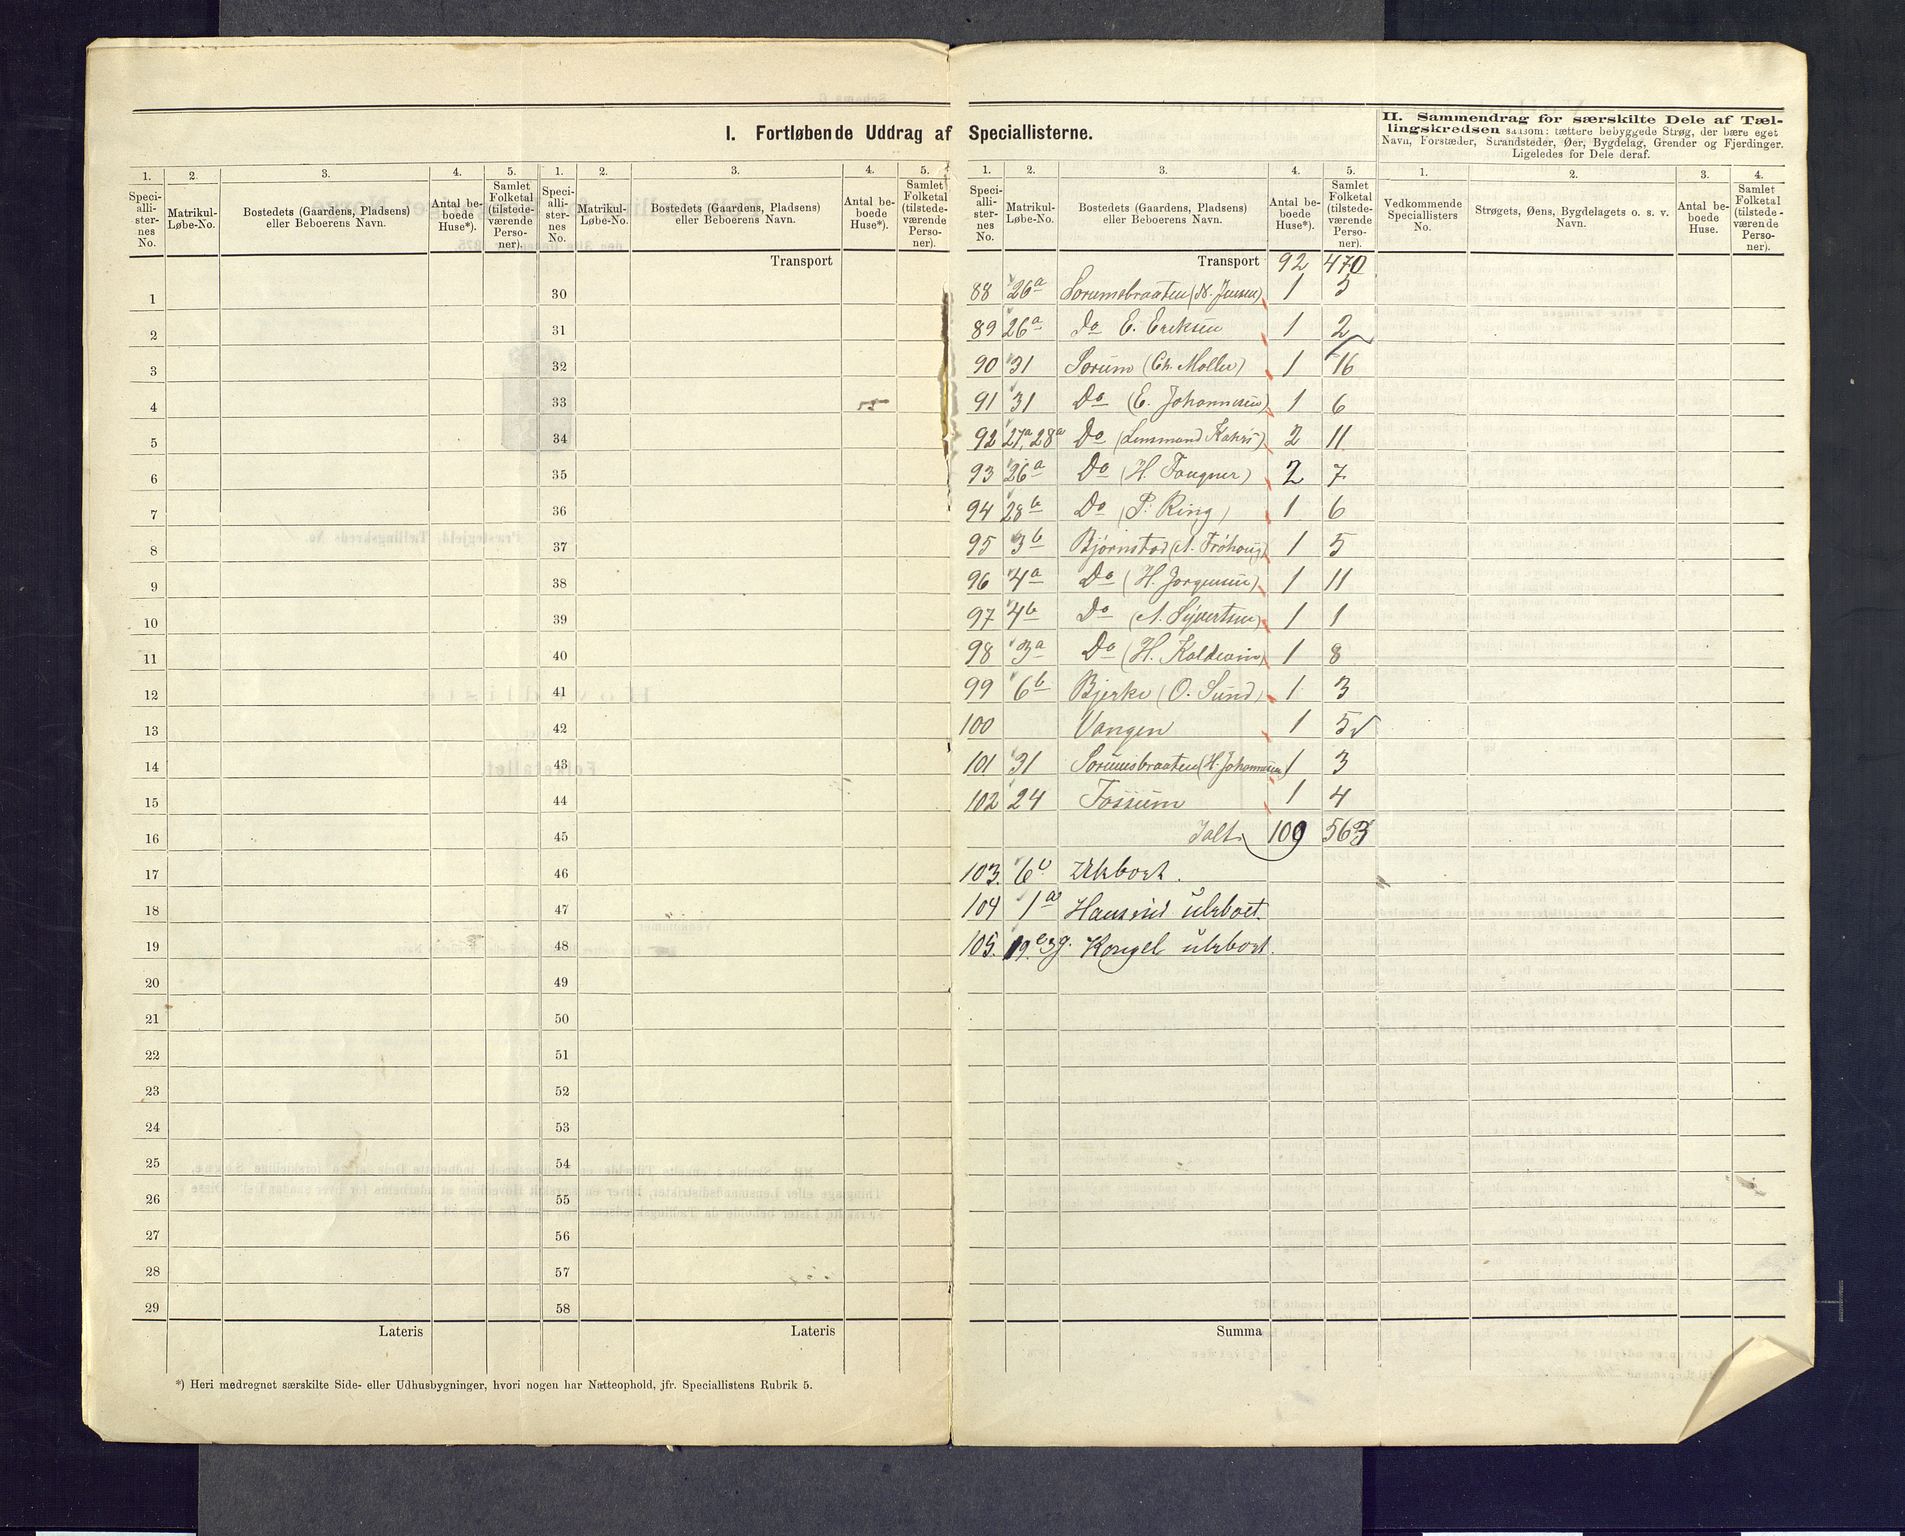 I. Fortløbende Uddrag af Speciallisterne.
II. Sammendrag for særskilte Dele af Tæl-
lingskredsen saasom: tættere bebyggede Strøg, der bære eget
Navn, Forstæder, Strandsteder, Øer, Bygdelag, Grender og Fjerdinger.
Ligeledes for Dele deraf.
1. 2. 3. 4. 5. 1. 2. 3. 4. 5.
Speci-
alli-
ster-
nes
No.
Matrikul-
Løbe-No.
Bostedets (Gaardens, Pladsens)
eller Beboerens Navn.
Antal be-
boede
Huse*).
Samlet
Folketal
(tilstede-
værende
Perso-
ner).
Speci-
alli-
ster-
nes
No.
Matrikul-
Løbe-No.
Bostedets (Gaardens, Pladsens)
eller Beboerens Navn.
Antal be-
boede
Huse*).
Samlet
Folketal
(tilstede-
værende
Perso-
ner).
Transport
1 30
2 31
3 32
4 33
5 34
6 35
7 36
8 37
9 38
10 39
11 40
12 41
13 42
14 43
15 44
16 45
17 46
18 47
19 48
20 49
21 50
22 51
23 52
24 53
25 54
26 55
27 56
28 57
29 58
Lateris Lateris
*) Heri medregnet særskilte Side- eller Udhusbygninger, hvori nogen har Natteophold, jfr. Speciallistens Rubrik 5.
1. 2. 3. 4. 5. 1. 2. 3. 4.
Speci-
alli-
ster-
nes
No.
Matrikul-
Løbe-No.
Bostedets (Gaardens, Pladsens)
eller Beboerens Navn.
Antal be-
boede
Huse*).
Samlet
Folketal
(tilstede-
værende
Perso-
ner).
Vedkommende
Speciallisters
No.
Strøgets, Øens, Bygdelagets o. s. v.
Navn.
Antal be-
boede
Huse.
Samlet
Folketal
(tilstede-
værende
Perso-
ner).
Transport 92 470
88 26a Sorumsbraaten (N. Jensen) 1 5
89 26a Do E. Eriksen 1 2
90 31 Sorum (Ch. Moller) 1 16
91 31 Do (E. Johannesen) 1 6
92 27a, 28a Do (Lensmand) 2 11
93 26a Do (H. Fougner) 2 7
94 28b Do (P. Ring) 1 6
95 3b Bjørnstad (A. Frøhoug) 1 5
96 4a Do (H. Jorgensen) 1 11
97 4b Do (A. Syvertsen) 1 1
98 3a Do (H. Koldevin) 1 8
99 6b Bjerke (O. Sund) 1 3
100 Vangen 1 5
101 31 Sorumsbraaten (H. Johannesen) 1 3
102 24 Fossum 1 4
Ialt 109 563
103. 6 Ubeboet.
104 1a ubeboet.
105. 19. Kongel ubeboet.
Summa